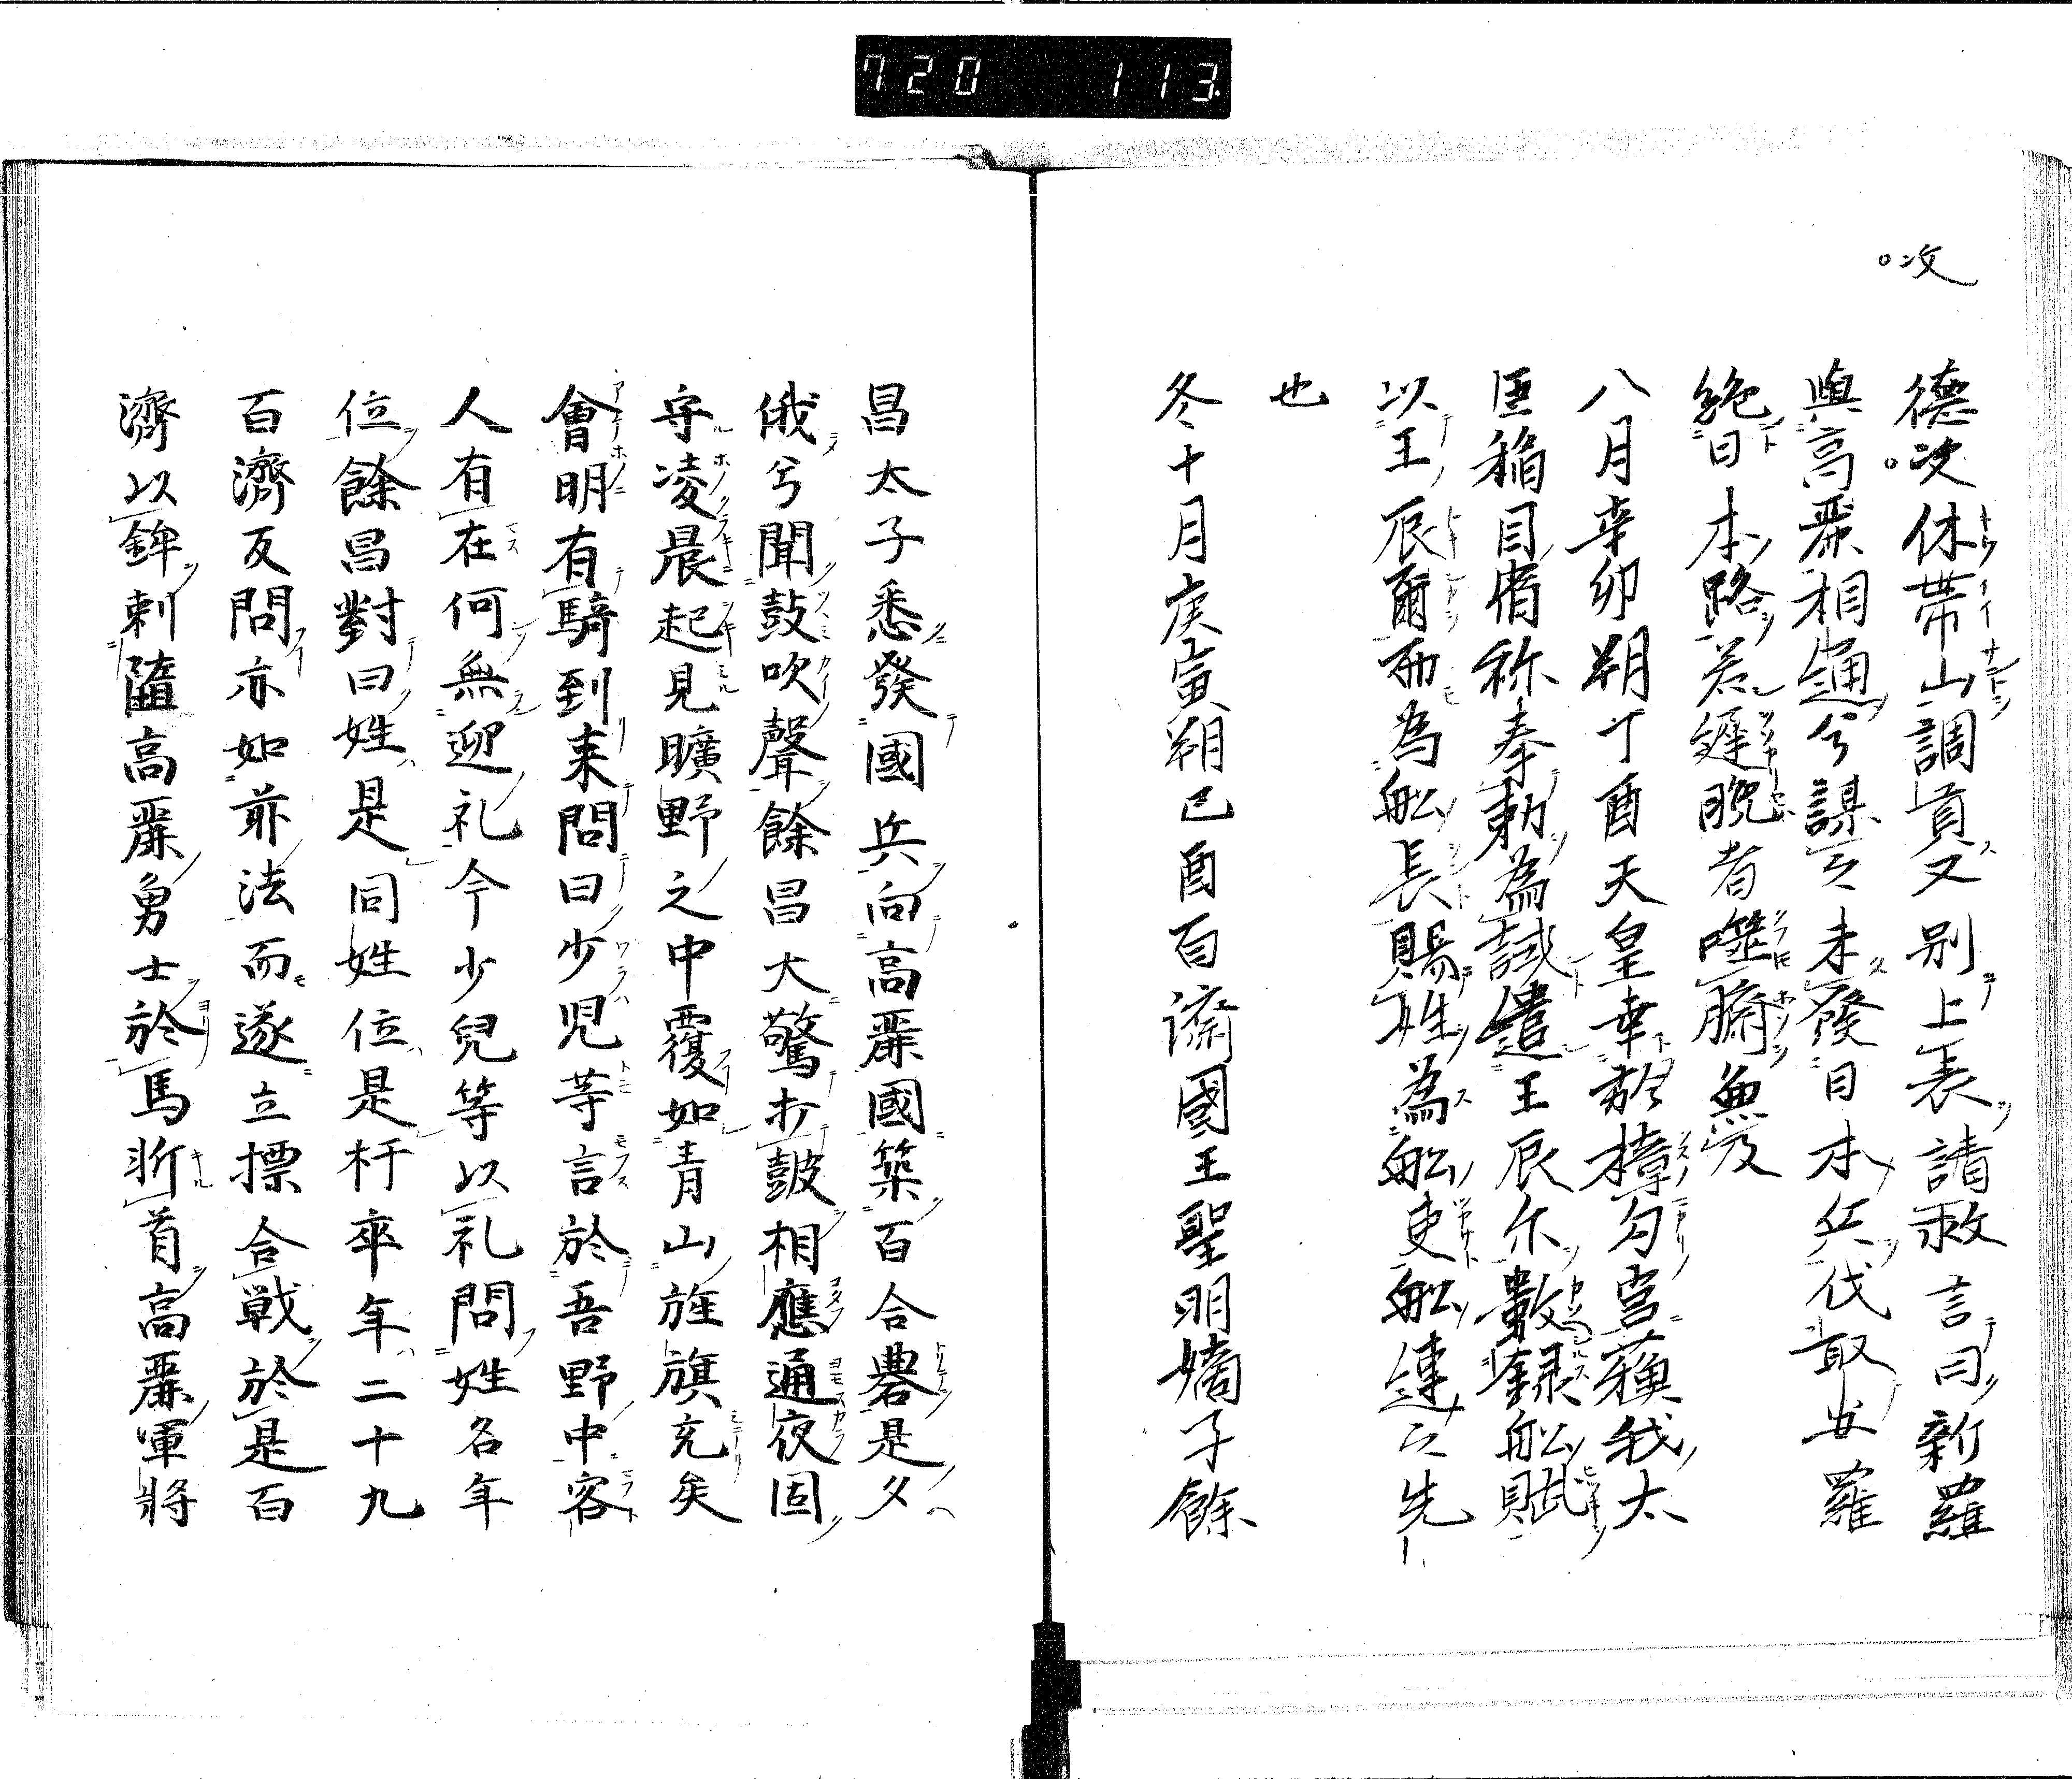 720 113
次
德次休帶山調貢又別上表請救言曰新羅
與高麗相通兮謀云未發日本兵伐取安羅
絶日本路若遲晚者噬臍無及
八月辛卯朔丁酉天皇幸於樟勾宮蘓我太
臣稲目宿祢奉勅為試遣王辰尒數録舩賦
以王辰爾而為舩長賜姓為舩吏舩連云先
也
冬十月庚寅朔己酉百濟國王聖明嫡子餘
昌太子悉發國兵向高麗國築百合礨是夕
俄兮聞鼓吹聲餘昌大驚打皷相應通夜固
守凌晨起見曠野之中覆如青山旌旗充矣
會明有騎到来問曰少児等言於吾野中客
人有在何無迎礼今少兒等以礼問姓名年
位餘昌對曰姓是同姓位是杆率年二十九
百濟反問亦如前法而遂立標合戦於是百
濟以鉾刺墮高麗勇士於馬斫首高麗軍將